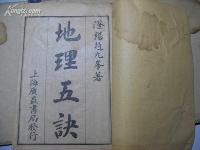 澄陽趙九峯著
地理五訣
上海廣益書局發行